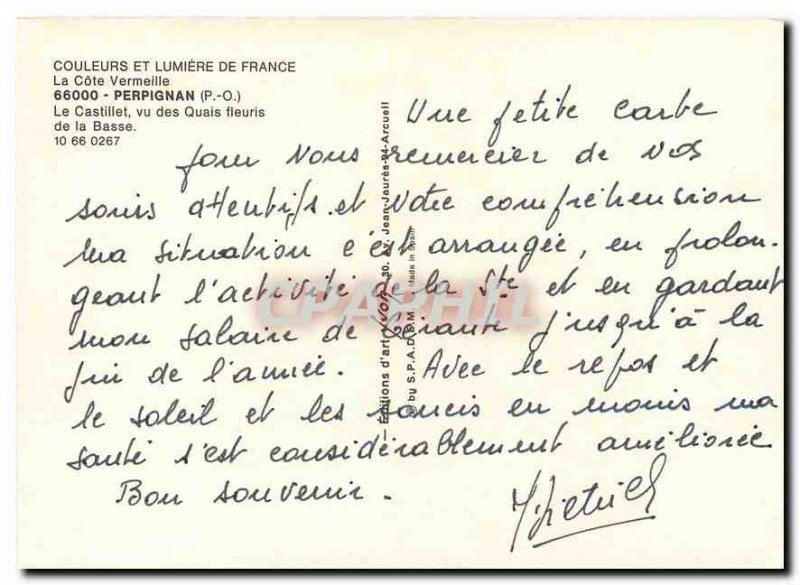 COULEURS ET LUMIÈRE DE FRANCE
La Côte Vermeille
66000 - PERPIGNAN (P.-O.)
Le Castillet, vu des Quais fleuris
de la Basse.
10 66 0267
Une petite carte
pour vous remercier de vos
soins attentifs et votre compréhension
ma situation c'est arrangée, en prolon-
geant l'activité de la Sté et en gardant
mon salaire de gérante jusqu'à la
fin de l'année. Avec le repos et
le soleil et les soucis en moins ma
santé s'est considérablement améliorée
Bon souvenir.
— Editions d'art YVON, 30, av. Jean-Jaurès-94-Arcueil
© by S.P.A.D.E.M. Made in Spain
CPARPHIL